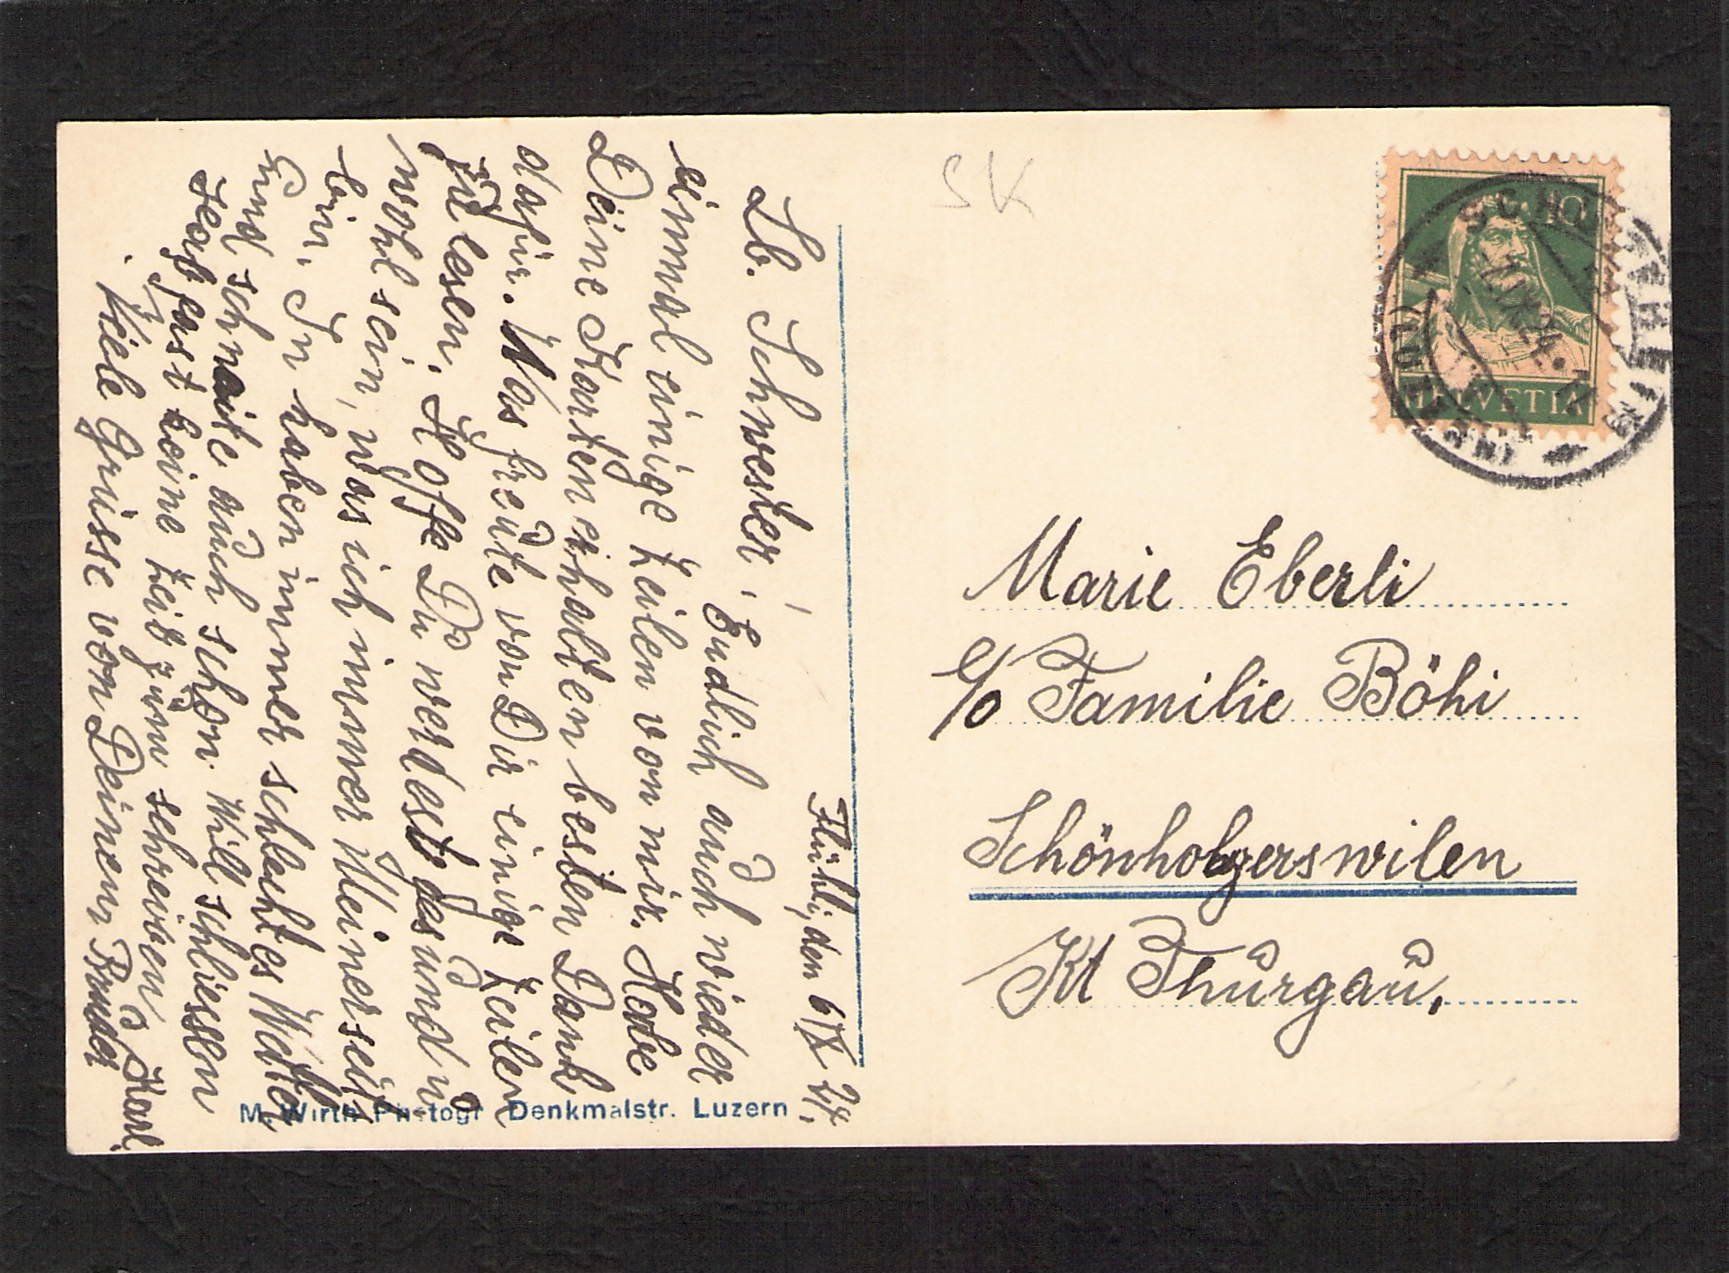 Flühli, den 6/X 24.
Lb. Schwester! Endlich auch wieder
einmal einige Zeilen von mir. Habe
Deine Karten erhalten besten Dank
dafür. Was freute von Dir einige Zeilen
zu lesen. Hoffe Du werdest gesund u
wohl sein, was ich immer Meinerseits
bin. Ir haben immer schlechtes Wätter
und schneite auch schon. Will schliessen
fast keine Zeit zum schreiben
Viele Grüsse von Deinem Bruder
Karl.
M. Wirth Photogr Denkmalstr. Luzern
SK
10
HELVETIA
(LUZERN)
Marie Eberli
c/o Familie Böhi
Schönholzerswilen
Kt Thurgau.